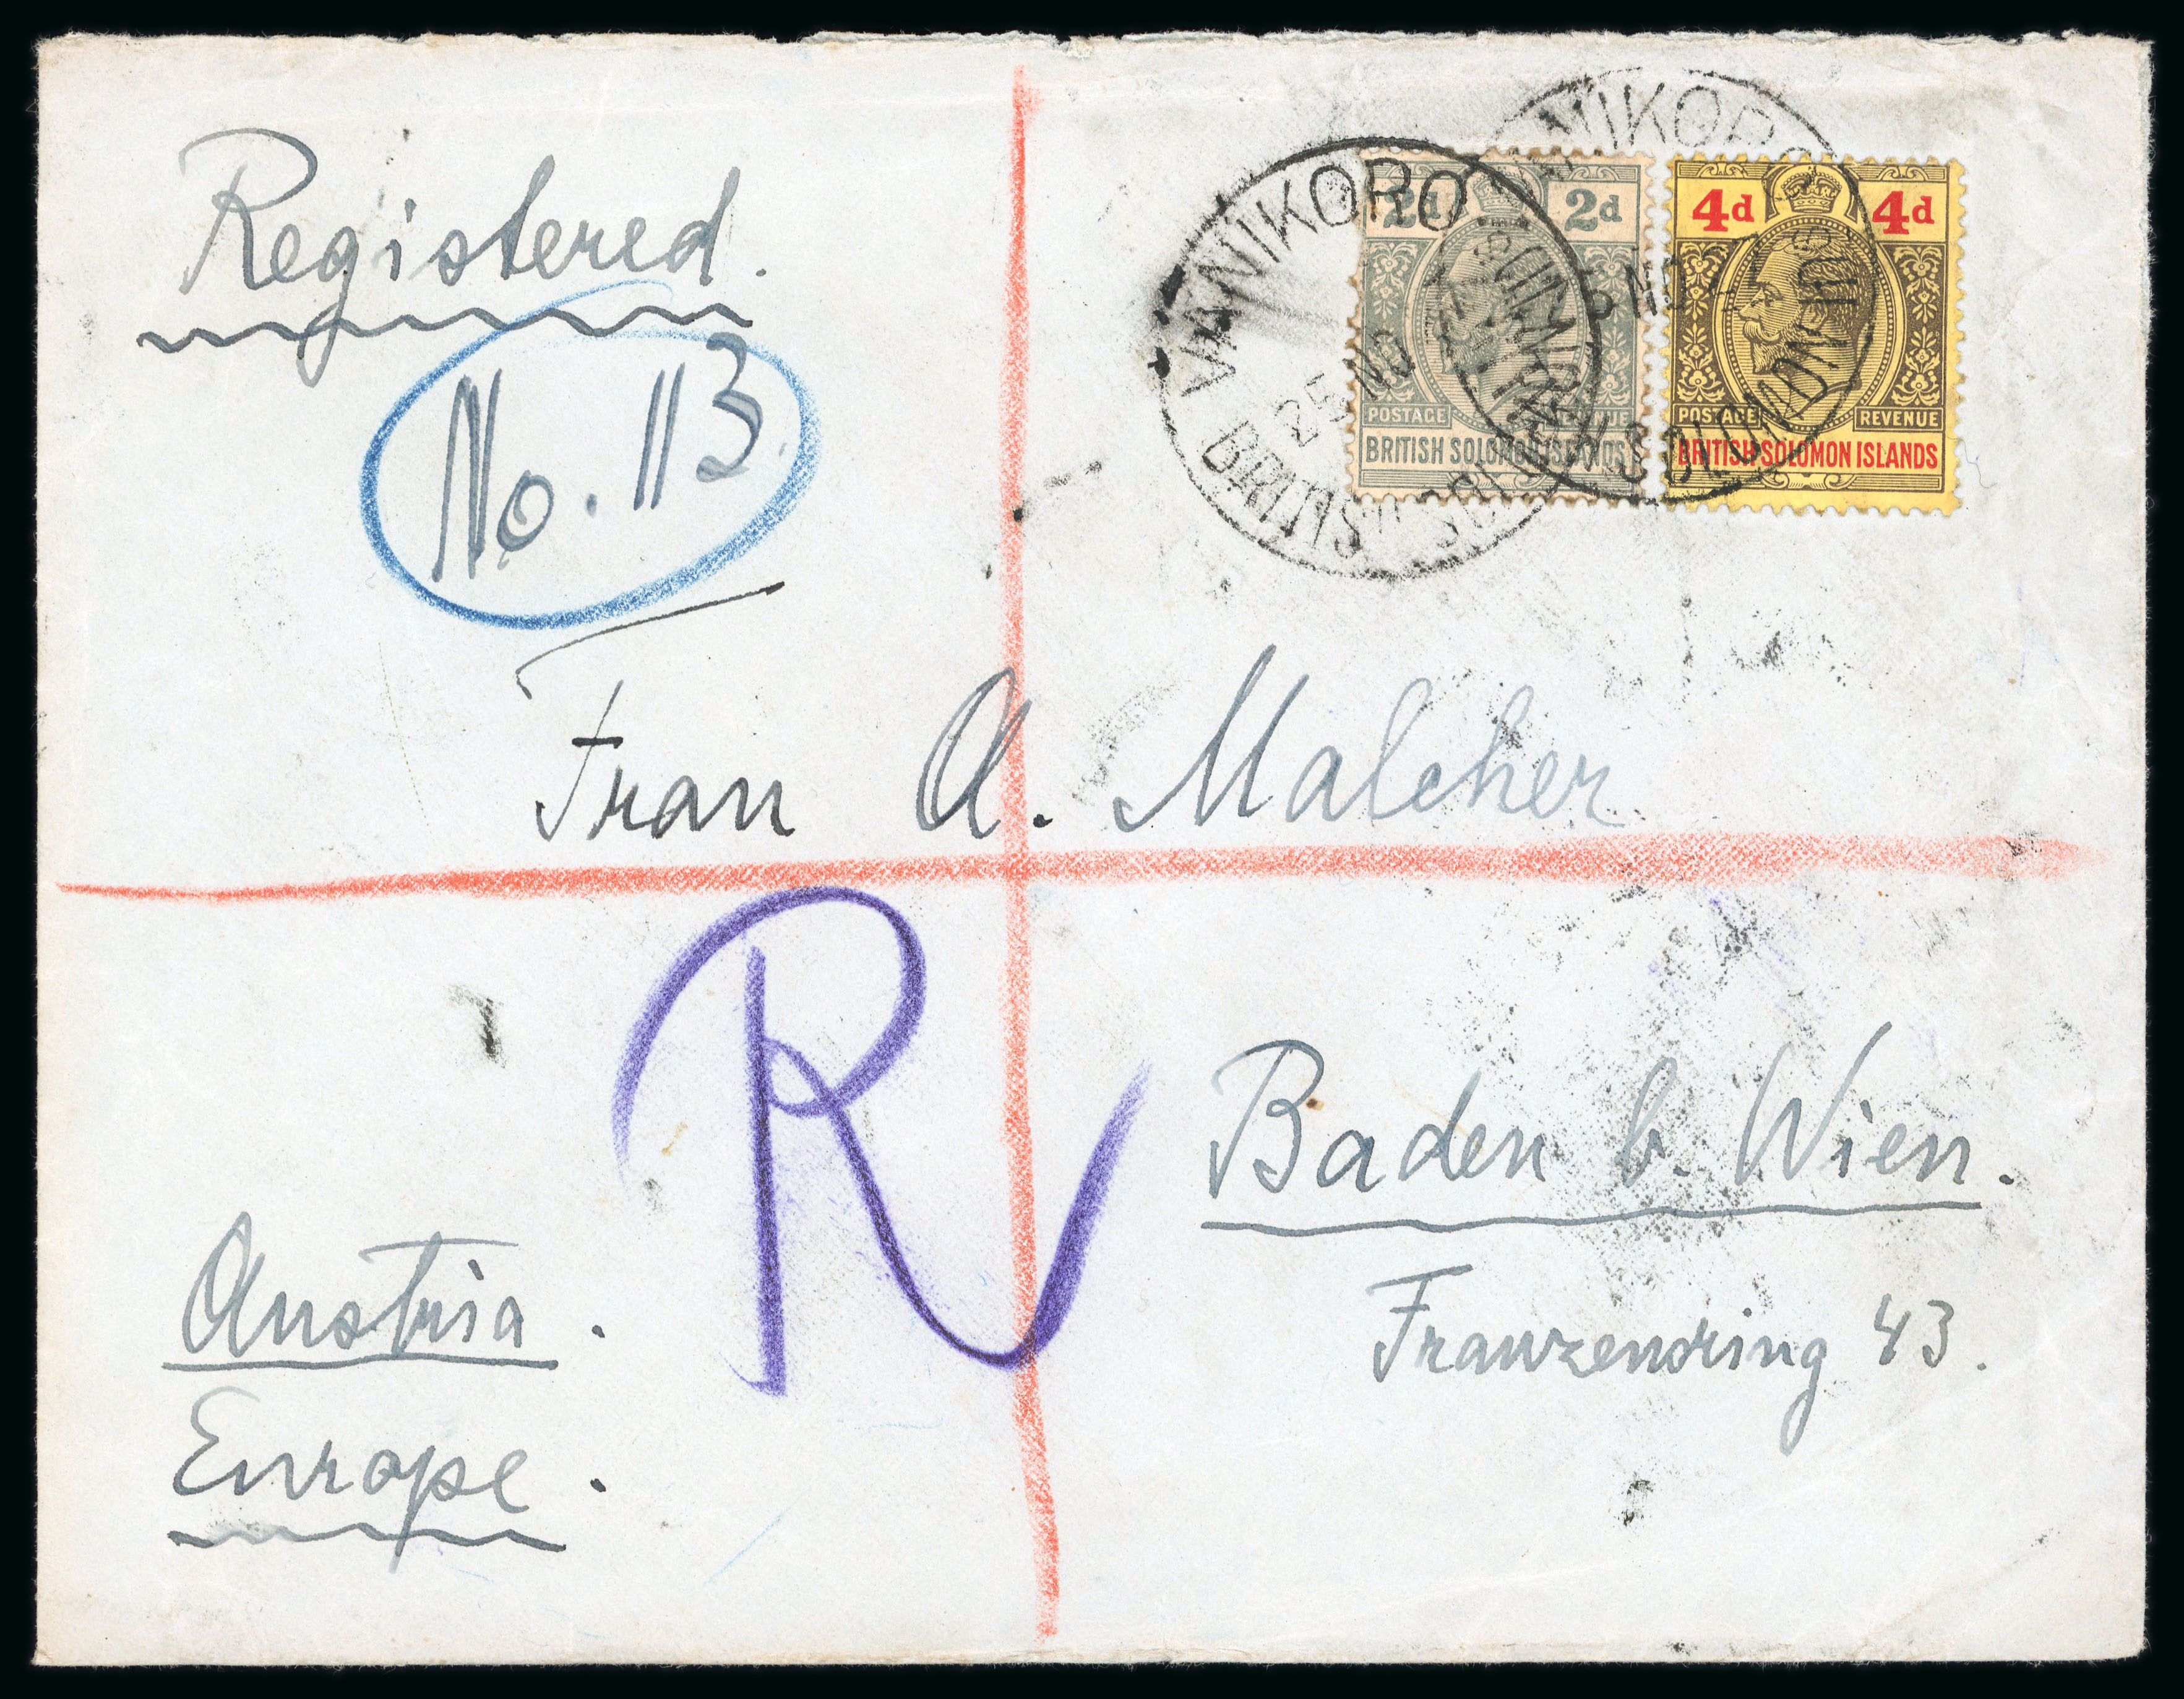 Registered.
No. 113
VANIKORO
25 NO
2d 2d
POSTAGE
BRITISH SOLOMON ISLANDS
4d 4d
POSTAGE REVENUE
BRITISH SOLOMON ISLANDS
Frau A. Malcher
R
Baden b. Wien.
Franzensring 43.
Austria.
Europe.